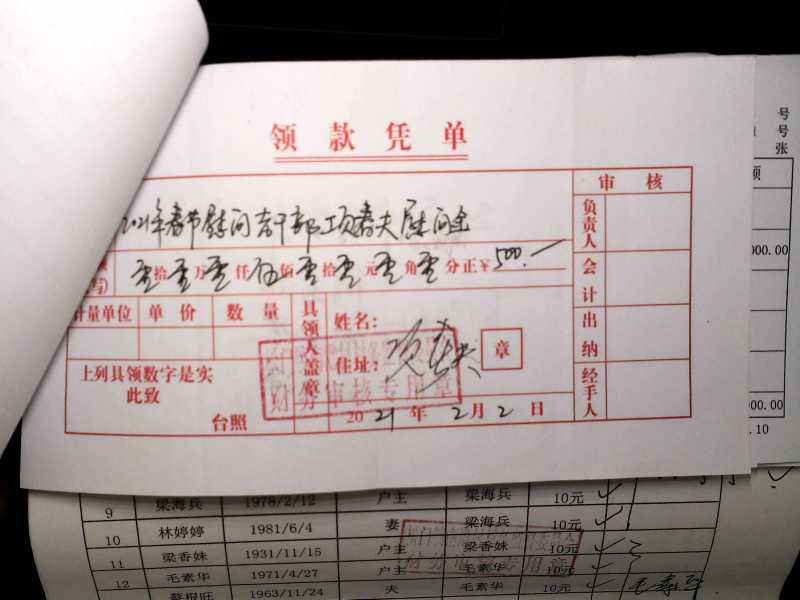 领款凭单
2021年春节慰问老干部项春夫慰问金
审核
负责人
会计
出纳
经手人
零拾零万零仟伍佰零拾零元零角零分正¥500.—
写)
计量单位 单价 数量
具领人盖章
姓名:
住址:
项春夫
章
上列具领数字是实
此致
台照
财务审核专用章
2021年2月2日
号
号
张
额
000.00
00.00
.10
9 梁海兵 1978/2/12 户主 梁海兵 10元
10 林婷婷 1981/6/4 妻 梁海兵 10元
11 梁香妹 1931/11/15 户主 梁香妹 10元
12 毛素华 1971/4/27 户主 毛素华 10元
蔡根旺 1963/11/24 夫 毛素华 10元